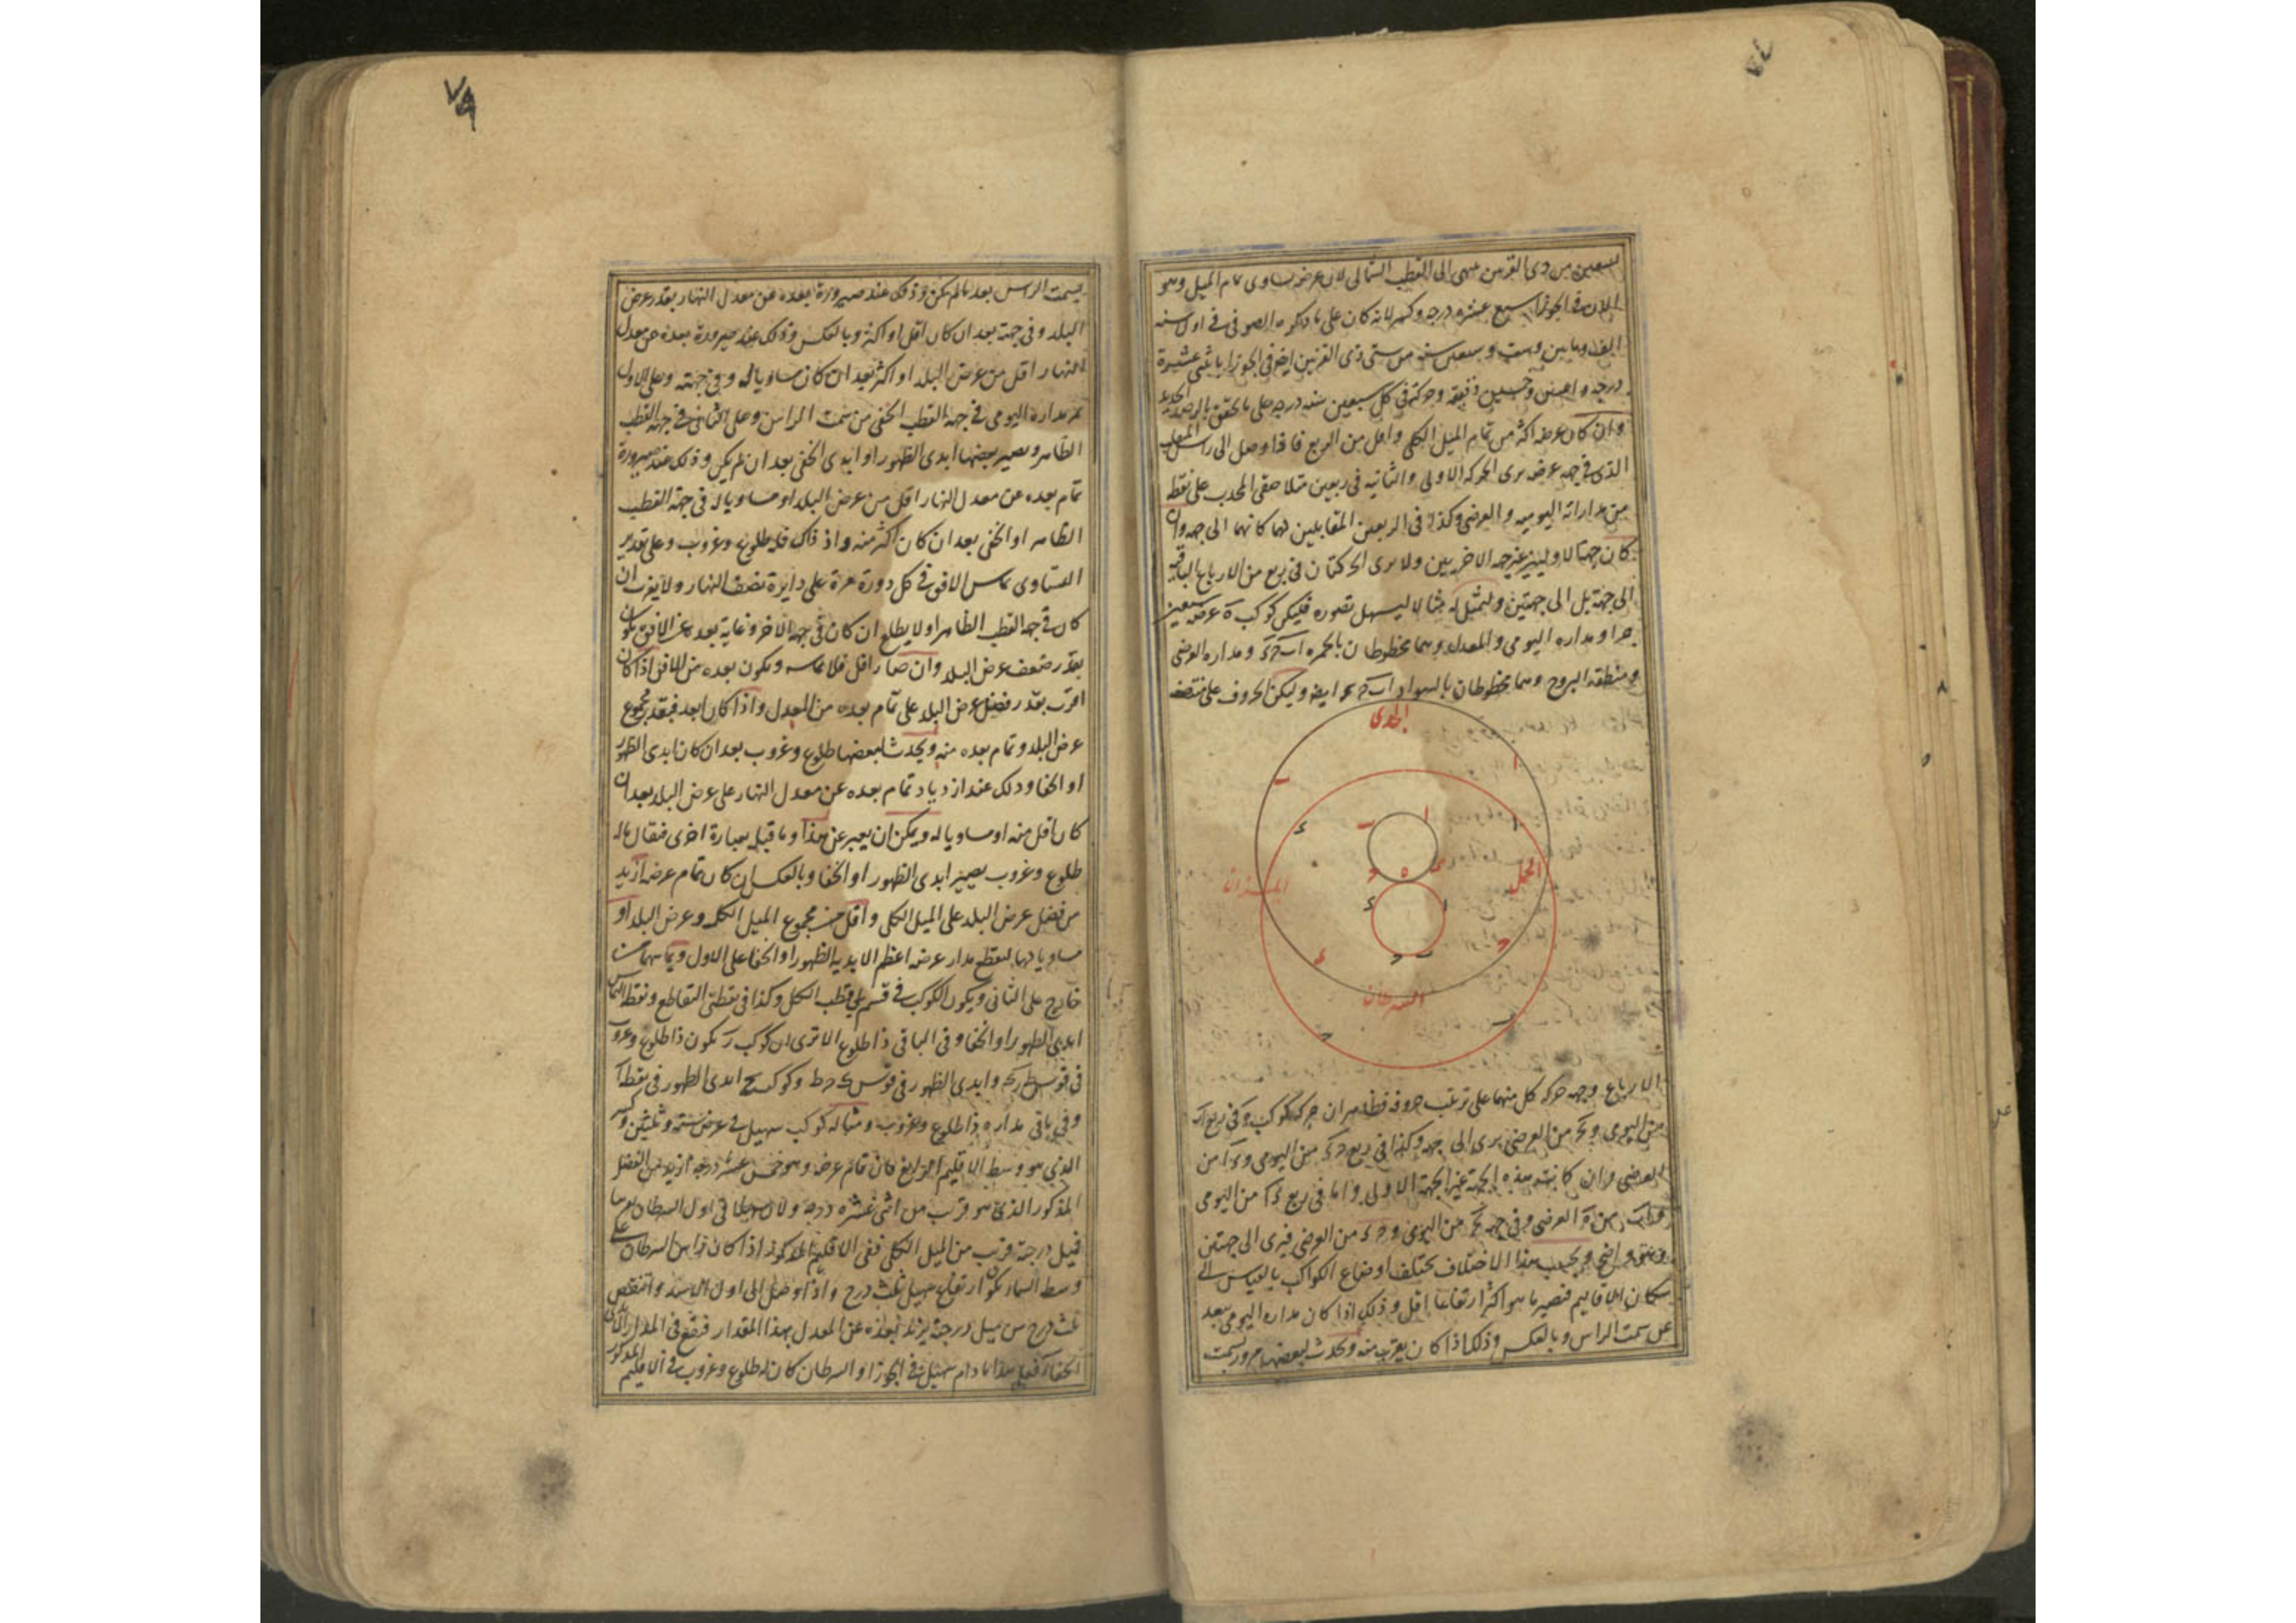 الى القطب الشمالى لان عرضه يساوى تمام الميل وهو
الان فى الجوزا سبع عشرة درجة وكسر لانه كان على ما ذكره الصوفى فى اول سنة
الف و مايتين وست وسبعين سنة من سنى ذى القرنين ايضا فى الجوزا باثنى عشرة
درجة و وخمسين دقيقة وحركته فى كل سبعين سنة درجة على ما تحقق بالرصد الجديد
وان كان عرضه اكثر من تمام الميل الكلى واقل من الربع فاذا وصل الى راس المنقلب
الذى فى جهة عرضه يرى الحركة الاولى والثانية فى ربعين متلاصقى المحدب على نقطة
من مداراته اليومية والعرضى وكذا فى الربعين المقابلين لهما كانهما الى جهة وان
كان جهتا الاوليين غير جهة الاخريين ولا يرى الحركتان فى ربع من الارباع الباقية
الى جهة بل الى جهتين ولنمثل له مثالا ليسهل تصوره فليكن كوكب ه عرضه سبعين
جزا ومداره اليومى والمعدل وهما مخطوطان بالحمرة ا ب ح د ومداره العرضى
ومنطقة البروج وهما مخطوطان بالسواد ا ب ح د ايضا وليكن الحروف على منتصف
الجدى
ا
ب
ا
ب
ا
د
الحمل
الميزان
ه
د
ا
ح
ب
السرطان
الارباع وجهة حركة كل منهما على ترتيب حروفه فظاهر ان حركة كوكب ه فى ربع ا ب
من اليومى و من العرضى يرى الى جهة وكذا فى ربع ح د من اليومى و د ا من
العرضى وان كانت هذه الجهة غير الجهة الاولى واما فى ربع د ا من اليومى
من العرضى وفى جهة من اليومى و ح د من العرضى فيرى الى جهتين
وهو واضح وبحسب هذا الاختلاف يختلف اوضاع الكواكب بالقياس الى
سكان الاقاليم فيصير ما هو اكثر ارتفاعا اقل وذلك اذا كان مداره اليومى يبعد
عن سمت الراس وبالعكس وذلك اذا كان يقرب منه ويحدث لبعضها مرور بسمت
٧٩
بسمت الراس بعد ما لم يكن وذلك عند صيرورة بعده عن معدل النهار بقدر عرض
البلد وفى جهته بعد ان كان اقل او اكثر وبالعكس وذلك عند صيرورة بعده عن معدل
النهار اقل من عرض البلد او اكثر بعد ان كان مساويا له وفى جهته وعلى الاول
يمر مداره اليومى فى جهة القطب الخفى من سمت الراس وعلى الثانى فى جهة القطب
الظاهر ويصير بعضها ابدى الظهور او ابدى الخفى بعد ان لم يكن وذلك عند صيرورة
تمام بعده عن معدل النهار اقل من عرض البلد او مساويا له فى جهة القطب
الظاهر او الخفى بعد ان كان اكثر منه واذ ذاك فله طلوع وغروب وعلى تقدير
التساوى يماس الافق فى كل دورة مرة على دايرة نصف النهار ولا يغرب ان
كان فى جهة القطب الظاهر اولا يطلع ان كان فى جهة الاخر وغاية بعده عن الافق تكون
بقدر ضعف عرض البلد وان صار اقل فلا يماسه ويكون بعده عن الافق اذا كان
اقرب بقدر فضل عرض البلد على تمام بعده من المعدل واذا كان ابعد فبقدر مجموع
عرض البلد وتمام بعده منه ويحدث لبعضها طلوع وغروب بعد ان كان ابدى الظهور
او الخفا وذلك عند ازدياد تمام بعده عن معدل النهار على عرض البلد بعد ان
كان اقل منه او مساويا له ويمكن ان يعبر عن هذا وما قبله بعبارة اخرى فيقال ما له
طلوع وغروب يصير ابدى الظهور او الخفا وبالعكس ان كان تمام عرضه ازيد
من فضل عرض البلد على الميل الكلى واقل من مجموع الميل الكلى وعرض البلد او
مساويا لهما ليقطع مدار عرضه اعظم الابدية الظهور او الخفا على الاول ويماسها من
خارج على الثانى ويكون الكوكب فى قسم يلى قطب الكل وكذا فى نقطتى التقاطع ونقطة التماس
ابدى الظهور او الخفا وفى الباقى ذا طلوع الا ترى ان كوكب ر يكون ذا طلوع وغروب
فى قوس وابدى الظهور فى قوس وكوكب ابدى الظهور فى نقطة
وفى باقى مداره ذا طلوع وغروب ومثاله كوكب سهيل فى عرض ستة وثلثين وكسر
الذى هو وسط الاقليم الرابع فان تمام عرضه وهو خمس عشرة درجة ازيد من الفضل
المذكور الذى هو قريب من اثنى عشرة درجة ولان سهيلا فى اول السرطان
فميل درجته قريب من الميل الكلى ففى الاقليم المذكور اذا كان راس السرطان على
وسط السما يكون ارتفاع سهيل ثلث درج واذا وصل الى اول الاسد وانتقص
ثلث درج من ميل درجته يزيد بعده عن المعدل بهذا المقدار فيقع فى المدار الابدى
الخفا فعلى هذا ما دام سهيل فى الجوزا والسرطان كان له طلوع وغروب فى الاقليم المذكور